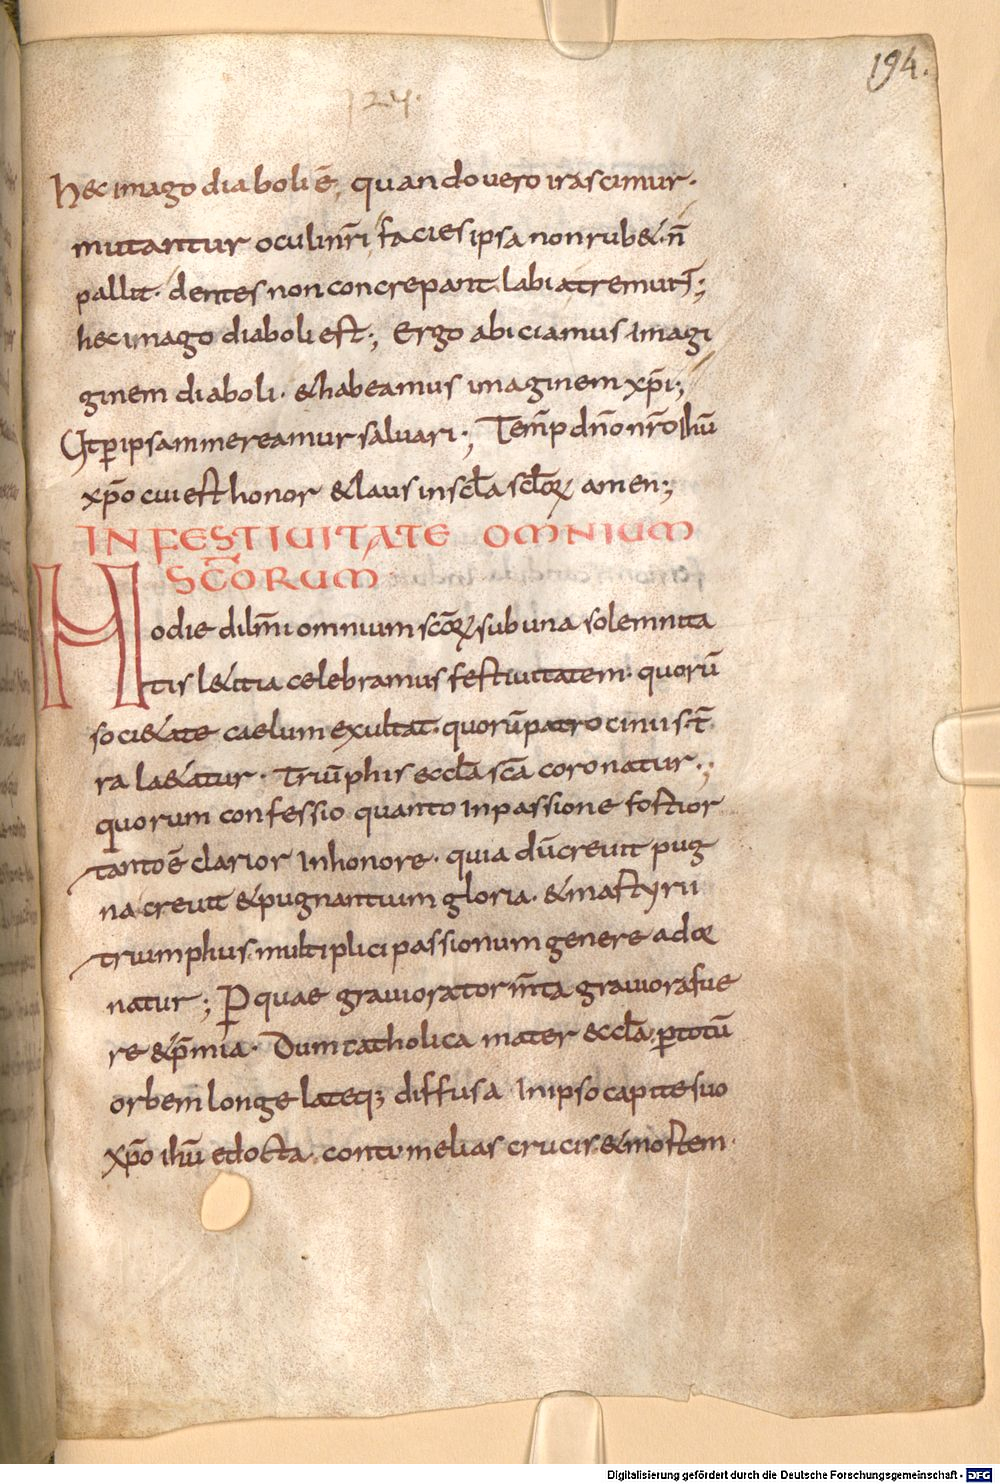 194.
124.
hec imago diaboli ē, quando uero irascimur·
mutantur oculi nr̄i, facies ipsa non rub&· n̄
pallit· dentes non concrepant, labia tremunt;
hec imago diaboli est; Ergo abiciamus imagi
ginem diaboli· & habeamus imaginem xp̄i;
Ut per ipsam mereamur saluari·; Temp̄ dn̄o nr̄o ihū
xp̄o cui est honor & laus in scl̄a scl̄oꝝ amen;
IN FESTIUITATE OMNIUM
SC̄ORUM
Hodie dilm̄i omnium sc̄oꝝ sub una solemnita
tis l&itia celebramus festiuitatem· quorū
soci&ate caelum exultat· quorū patrociniis t̄
ra la&atur· triūphis eccl̄a sc̄a coronatur·;
quorum confessio quanto in passione fortior
tanto ē clarior in honore· quia dū creuit pug
na creuit & pugnantium gloria· & martyrii
triumphus multiplici passionum genere ador
natur; Ꝑ quae grauiora torm̄ta grauiora fue
re & p̄mia· Dum catholica mater eccl̄a ꝑ totū
orbem longe lateq; diffusa In ipso capite suo
xp̄o ihū edocta· contumelias crucis & mortem·
Digitalisierung gefördert durch die Deutsche Forschungsgemeinschaft - DFG